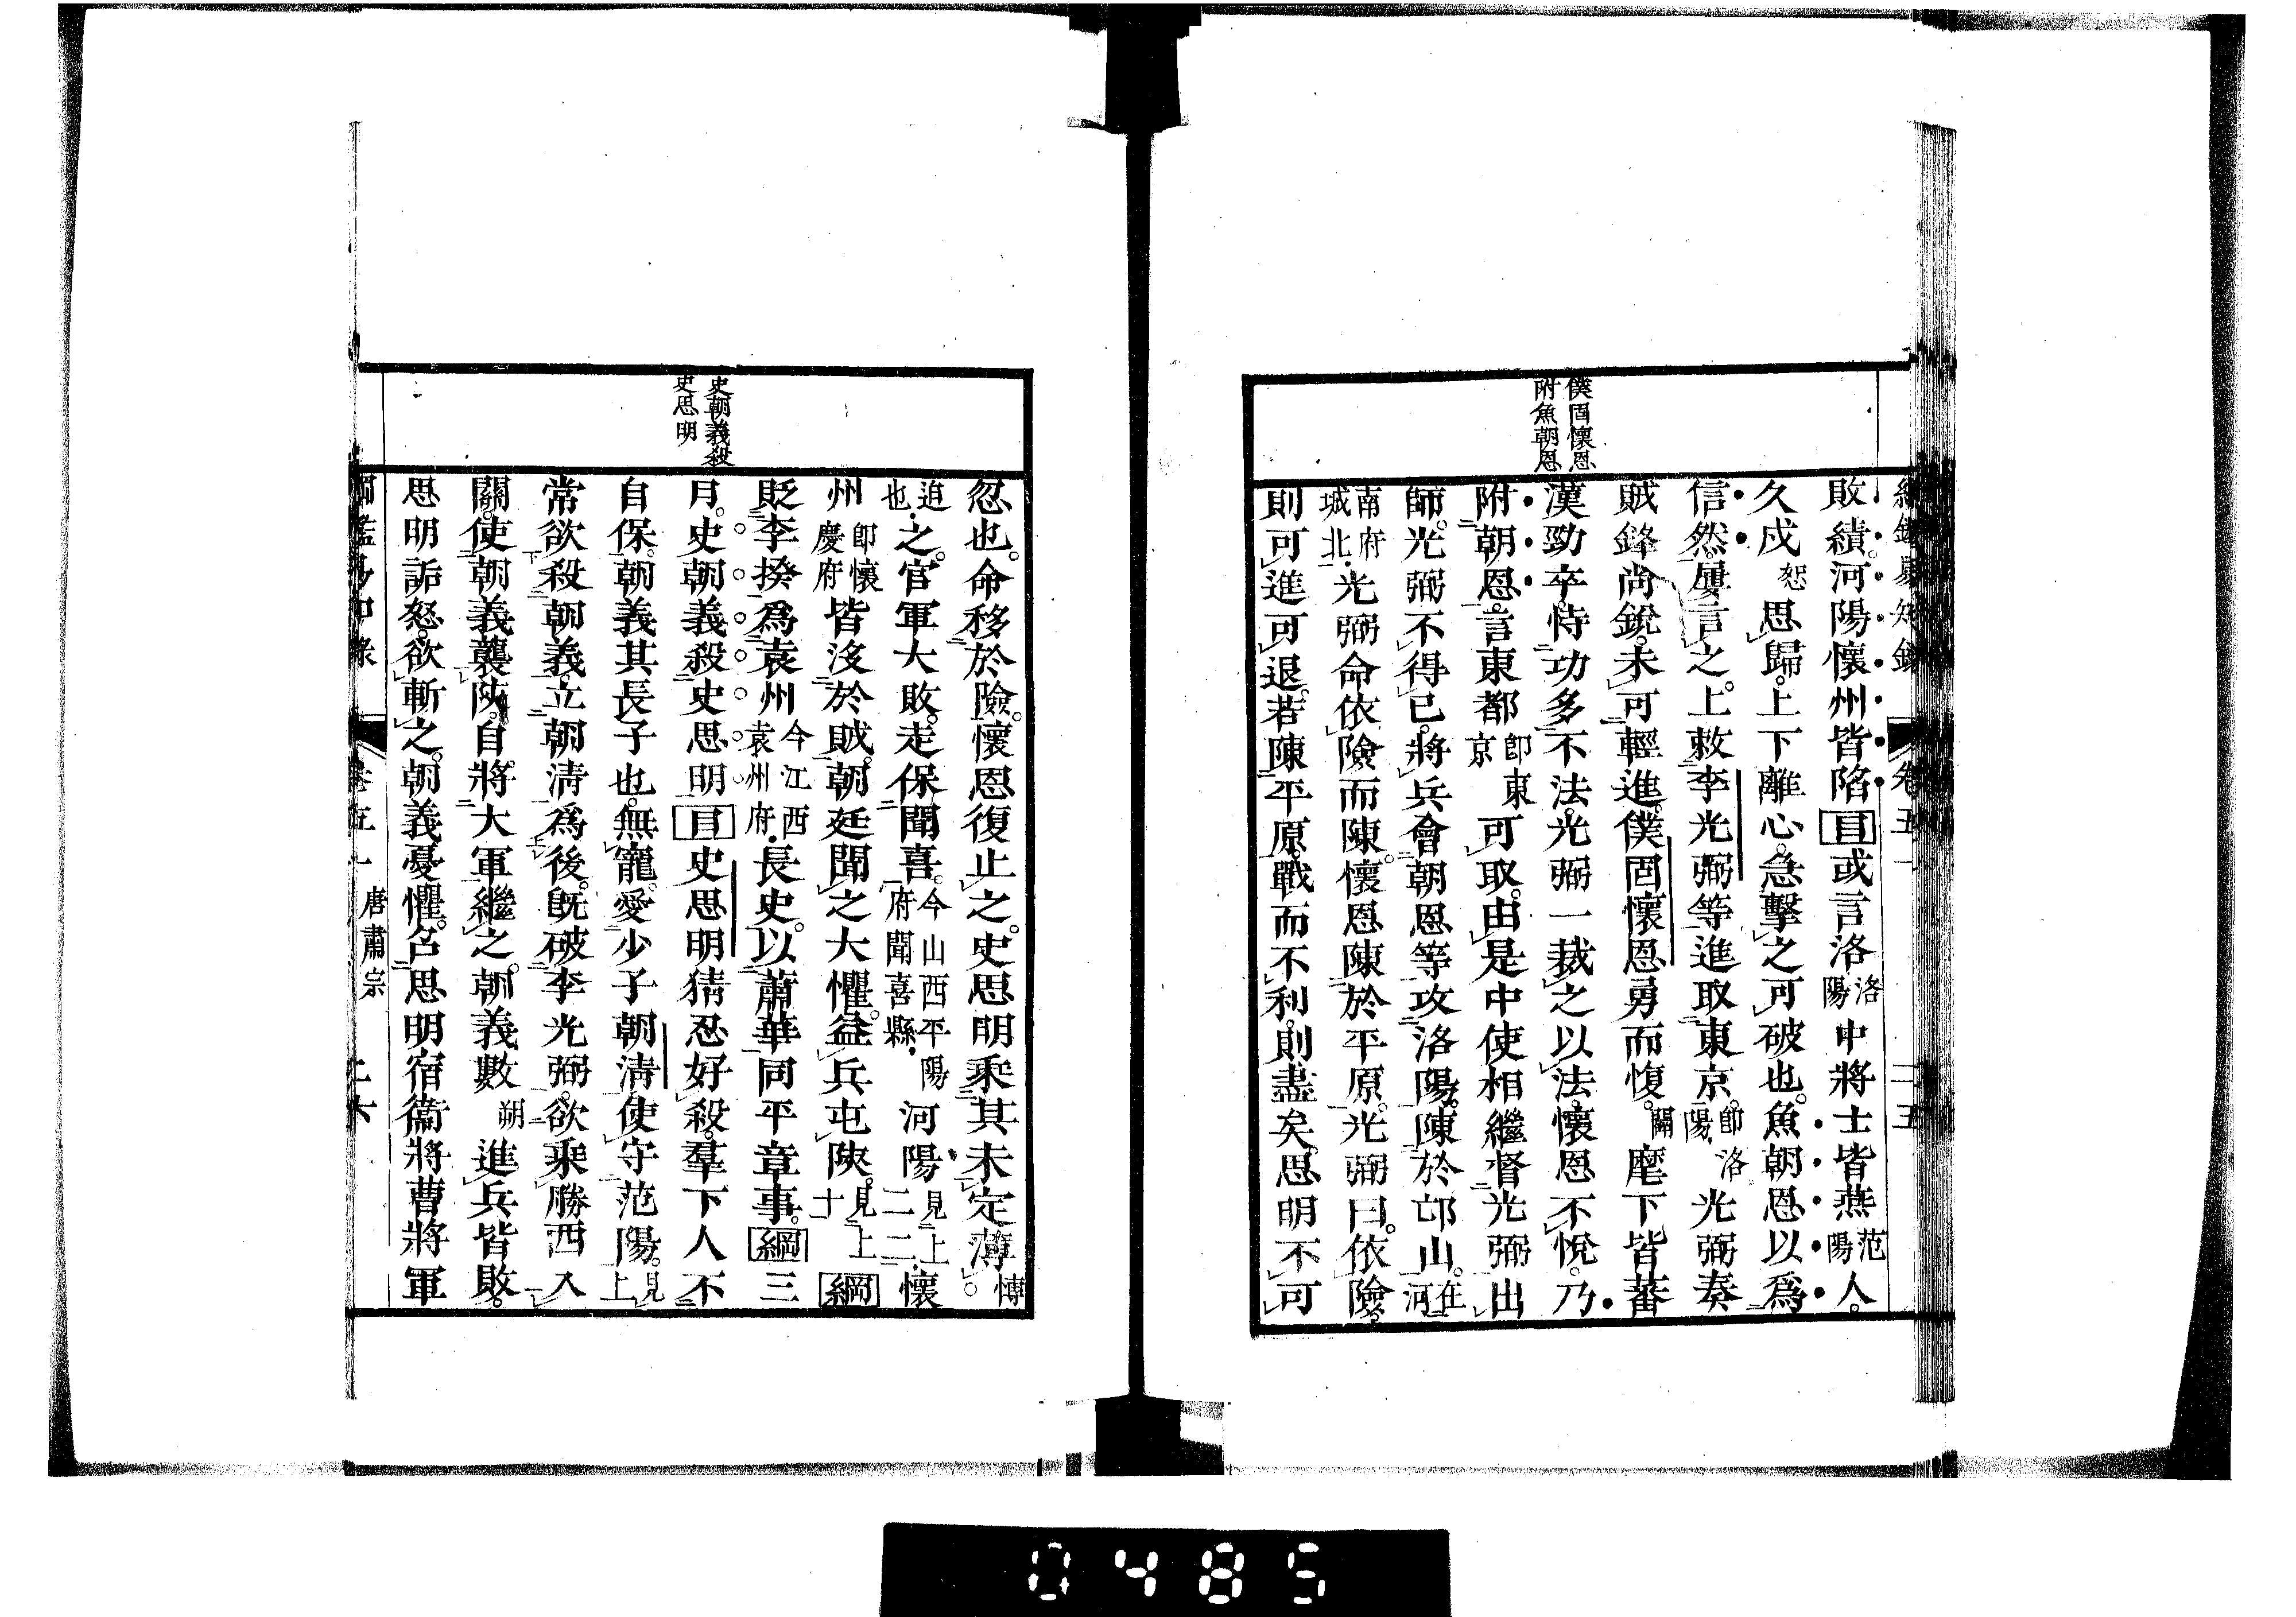 僕固懷恩
附魚朝恩
敗績。河陽懷州皆陷目或言洛洛陽中將士皆燕范陽人。
久戍恕思歸。上下離心。急擊之可破也。魚朝恩以爲
信然。屢言之。上敕李光弼等進取東京。卽洛陽光弼奏
賊鋒尚銳。未可輕進。僕固懷恩勇而愎。關麾下皆蕃
漢勁卒。恃功多不法。光弼一裁之以法。懷恩不悅。乃
附朝恩。言東都卽東京可取。由是中使相繼督光弼出
師。光弼不得已。將兵會朝恩等攻洛陽。陳於邙山。在河
南府城北光弼命依險而陳。懷恩陳於平原。光弼曰。依險。
則可進可退。若陳平原。戰而不利。則盡矣。思明不可
史朝義殺
史思明
忽也。命移於險。懷恩復止之。史思明乘其未定薄。慱
迫也之。官軍大敗。走保聞喜。今山西平陽府聞喜縣河陽見上二二懷
州卽懷慶府皆沒於賊。朝廷聞之大懼。益兵屯陝。見上十綱
貶李揆爲袁州今江西袁州府長史。以蕭華同平章事。綱三
月。史朝義殺史思明目史思明猜忍好殺。羣下人不
自保。朝義其長子也。無寵。愛少子朝淸。使守范陽。見上
常欲殺朝義。立朝淸爲後。旣破李光弼。欲乘勝西入
關。使朝義襲陝。自將大軍繼之。朝義數朔進兵皆敗。
思明詬怒。欲斬之。朝義憂懼。召思明宿衞將曹將軍
卷五一 唐肅宗
0485